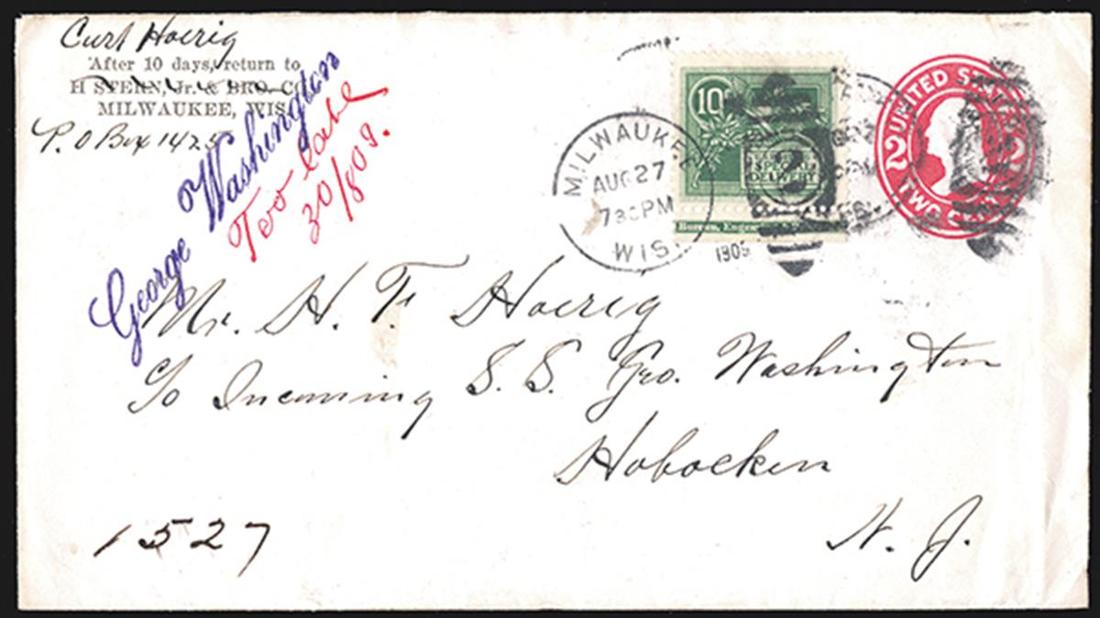 Curt Hoerig
After 10 days, return to
H STERN, Jr. & BRO. CO
MILWAUKEE, WIS
P. O Box 1425
George Washington
Too late
30/8 09.
MILWAUKEE
AUG 27
730 PM
WIS.
1909
10
SPECIAL
DELIVERY
Bureau, Engra
2
UNITED STATES
2 2
TWO CENTS
Mr. H. F. Hoerig
c/o Incoming S. S. Geo. Washington
Hoboken
N. J.
1527